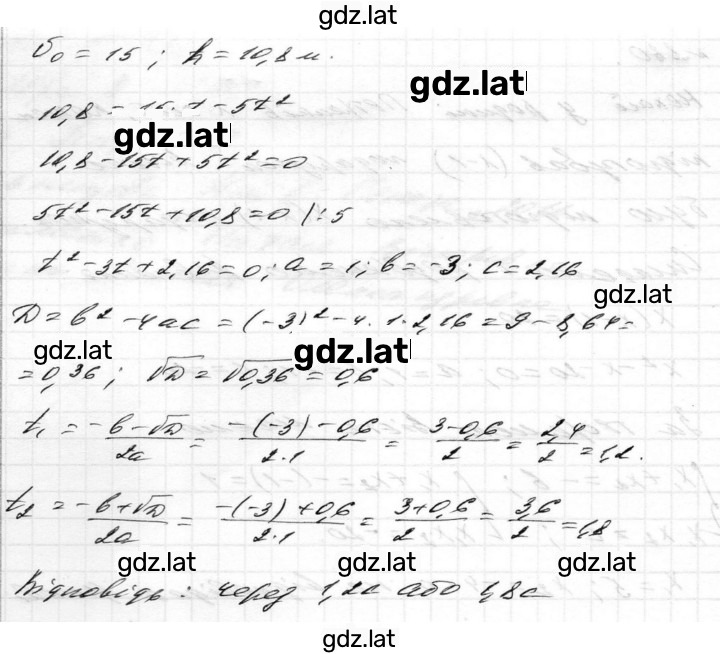 gdz.lat
v₀ = 15 ; h = 10,8 м.
gdz.lat
10,8 = 15·t - 5t²
gdz.lat
10,8 - 15t + 5t² = 0
5t² - 15t + 10,8 = 0 | : 5
t² - 3t + 2,16 = 0; a = 1; b = -3; c = 2,16
gdz.lat
D = b² - 4ac = (-3)² - 4·1·2,16 = 9 - 8,64 =
gdz.lat gdz.lat
= 0,36 ; √D = √0,36 = 0,6
t₁ = (-b - √D)/2a = (-(-3) - 0,6)/(2·1) = (3 - 0,6)/2 = 2,4/2 = 1,2.
t₂ = (-b + √D)/2a = (-(-3) + 0,6)/(2·1) = (3 + 0,6)/2 = 3,6/2 = 1,8
gdz.lat gdz.lat gdz.lat
Відповідь : через 1,2с або 1,8с
gdz.lat